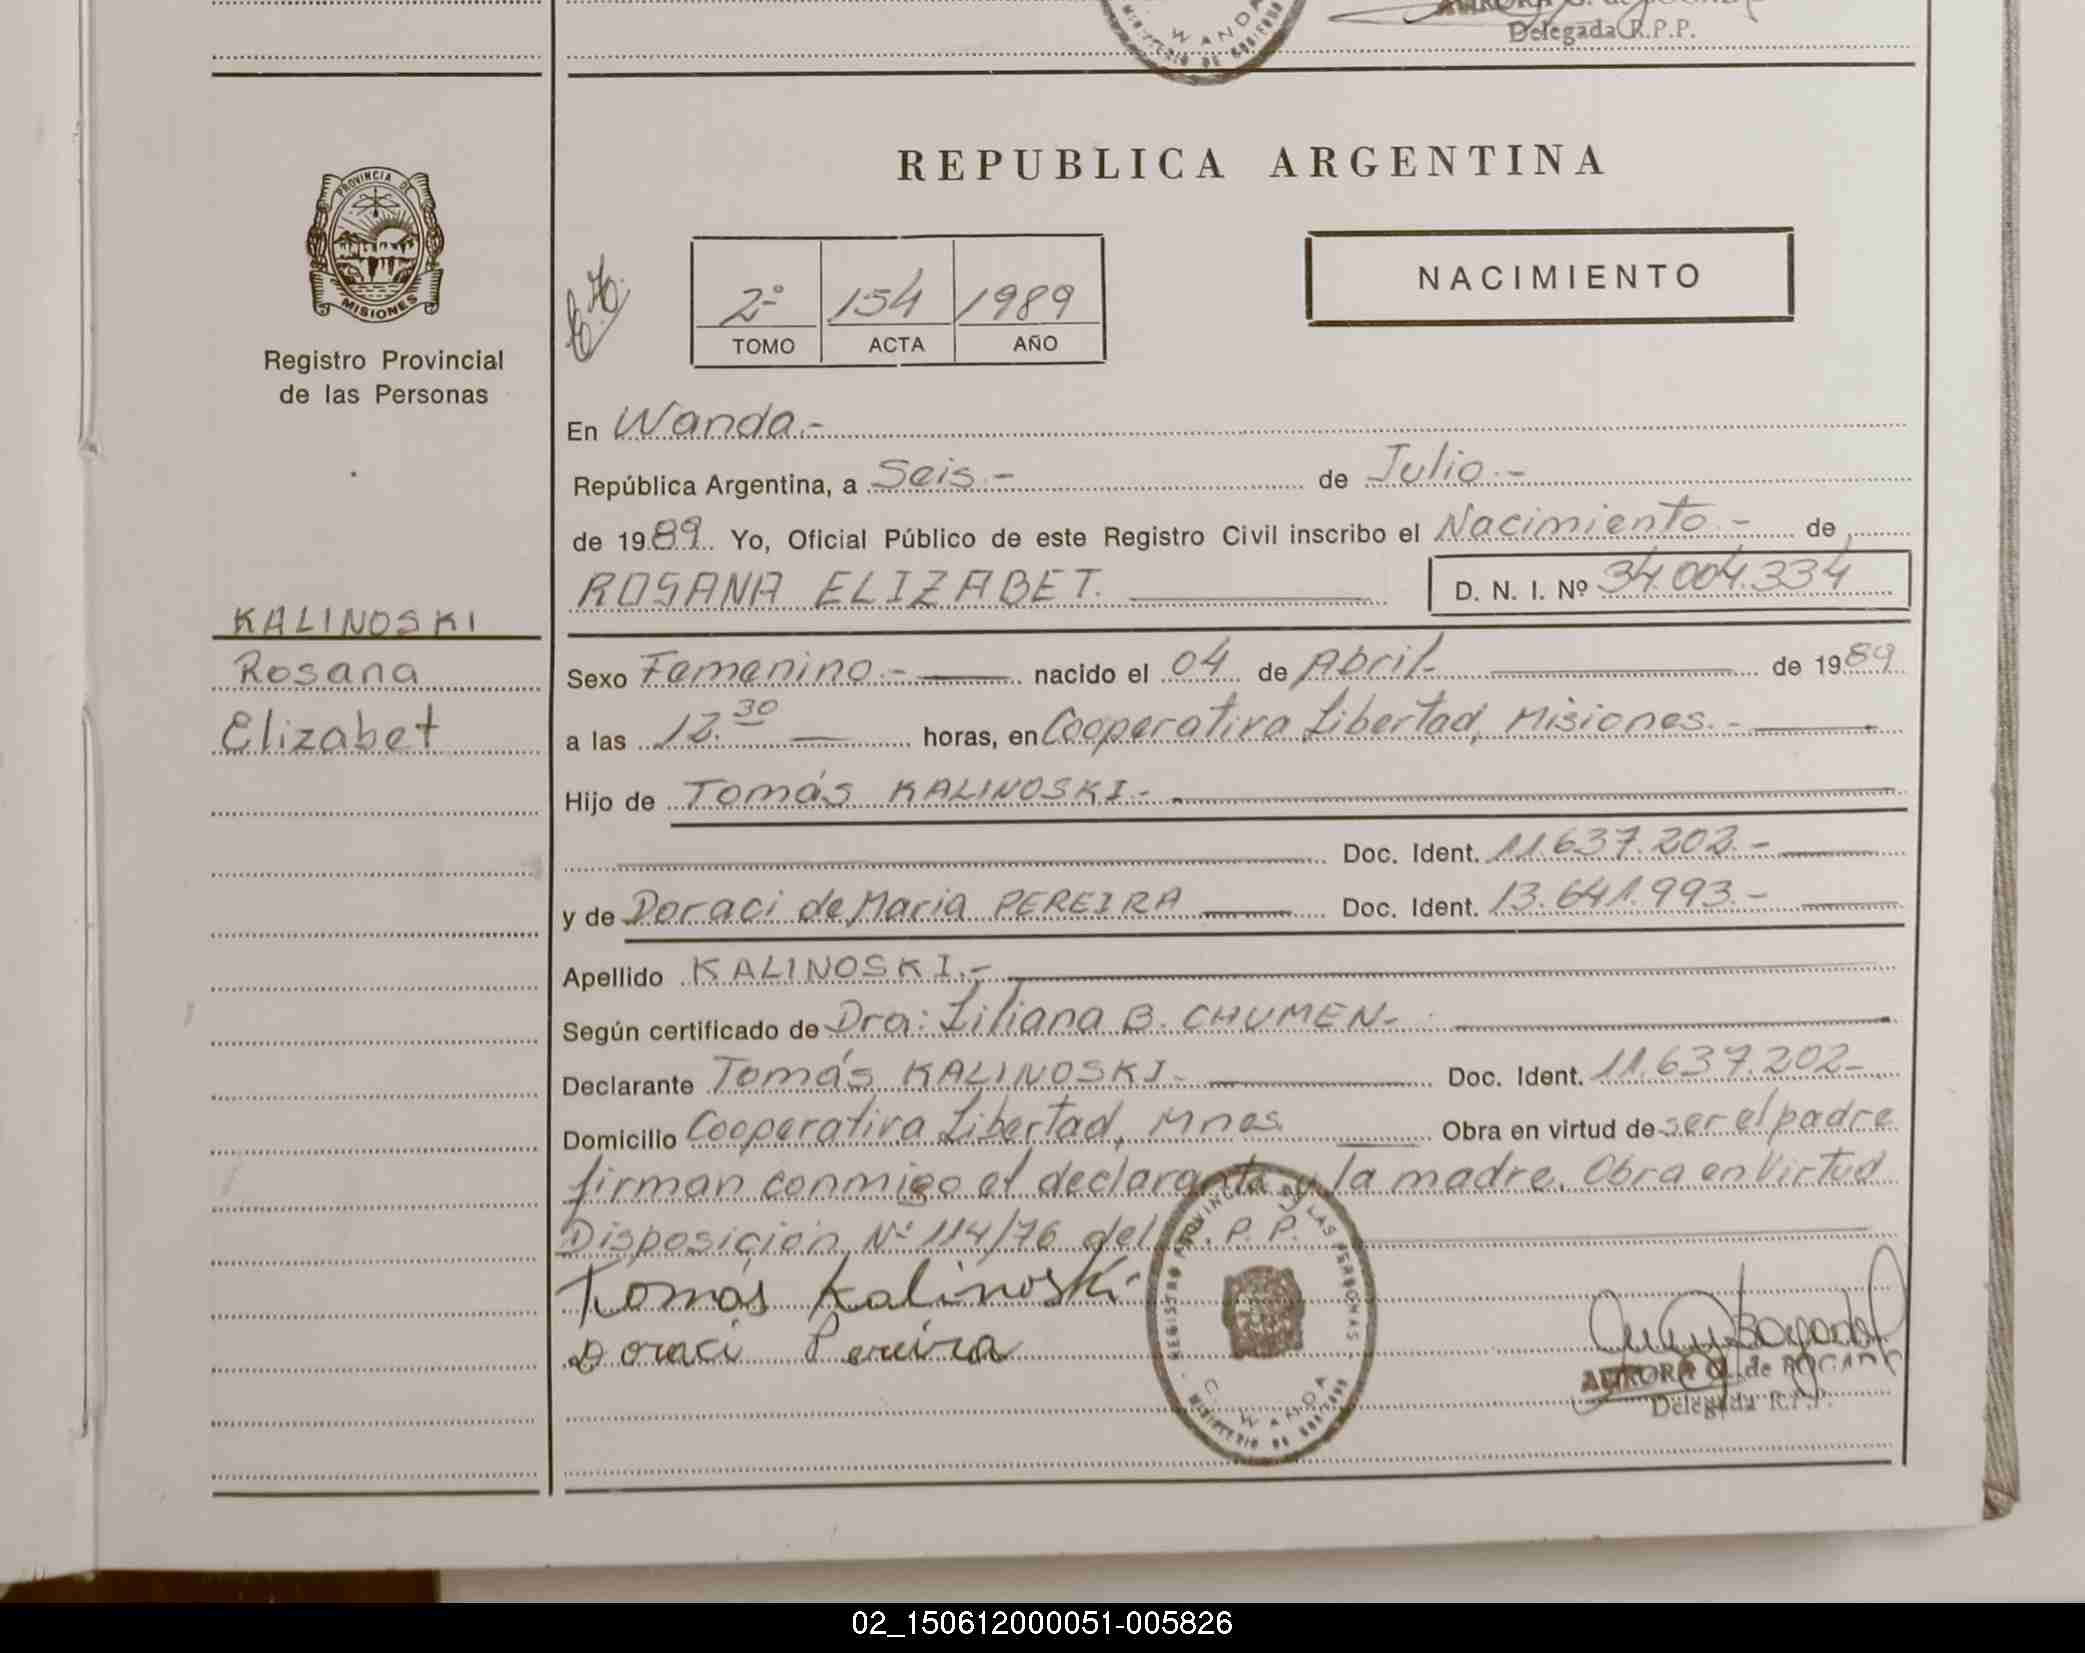 WANDA
MINISTERIO DE GOBIERNO
Delegada R.P.P.
REPUBLICA ARGENTINA
PROVINCIA DE
MISIONES
Registro Provincial
de las Personas
2º 154 1989
TOMO ACTA AÑO
NACIMIENTO
En Wanda.-
República Argentina, a Seis.- de Julio.-
de 1989. Yo, Oficial Público de este Registro Civil inscribo el Nacimiento.- de
ROSANA ELIZABET. D. N. I. Nº 34.004.334
KALINOSKI
Rosana
Elizabet
Sexo Femenino.- nacido el 04 de Abril.- de 1989
a las 12.30 horas, en Cooperativa Libertad, Misiones.-
Hijo de Tomás KALINOSKI.-
Doc. Ident. 11.637.202.-
y de Doraci de Maria PEREIRA Doc. Ident. 13.641.993.-
Apellido KALINOSKI.-
Según certificado de Dra: Liliana B. CHUMEN.-
Declarante Tomás KALINOSKI.- Doc. Ident. 11.637.202.-
Domicilio Cooperativa Libertad, Mnes. Obra en virtud de ser el padre
firman conmigo el declarante y la madre. Obra en Virtud
Disposición Nº 114/76 del R.P.P.
Tomás Kalinoski
Doraci Pereira
REGISTRO PROVINCIAL DE LAS PERSONAS
WANDA
MINISTERIO DE GOBIERNO
AURORA G. de BOGADO
Delegada R.P.P.
02_150612000051-005826